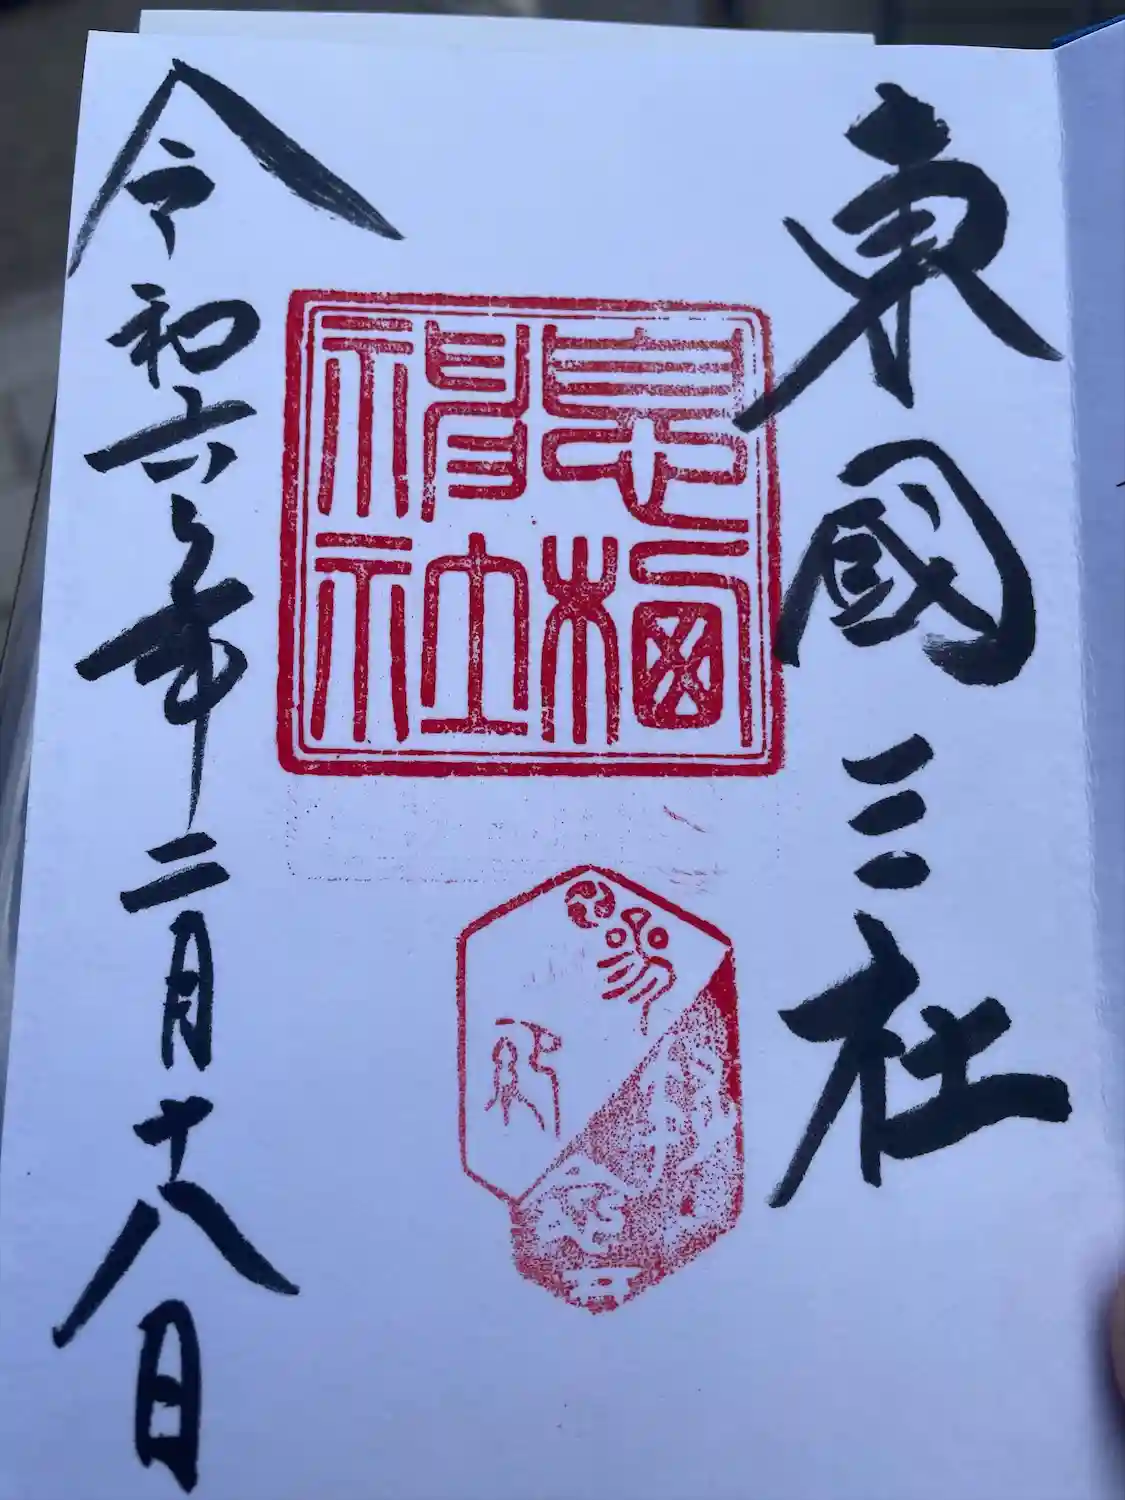 東國三社
息栖
神社
令和六年二月十八日